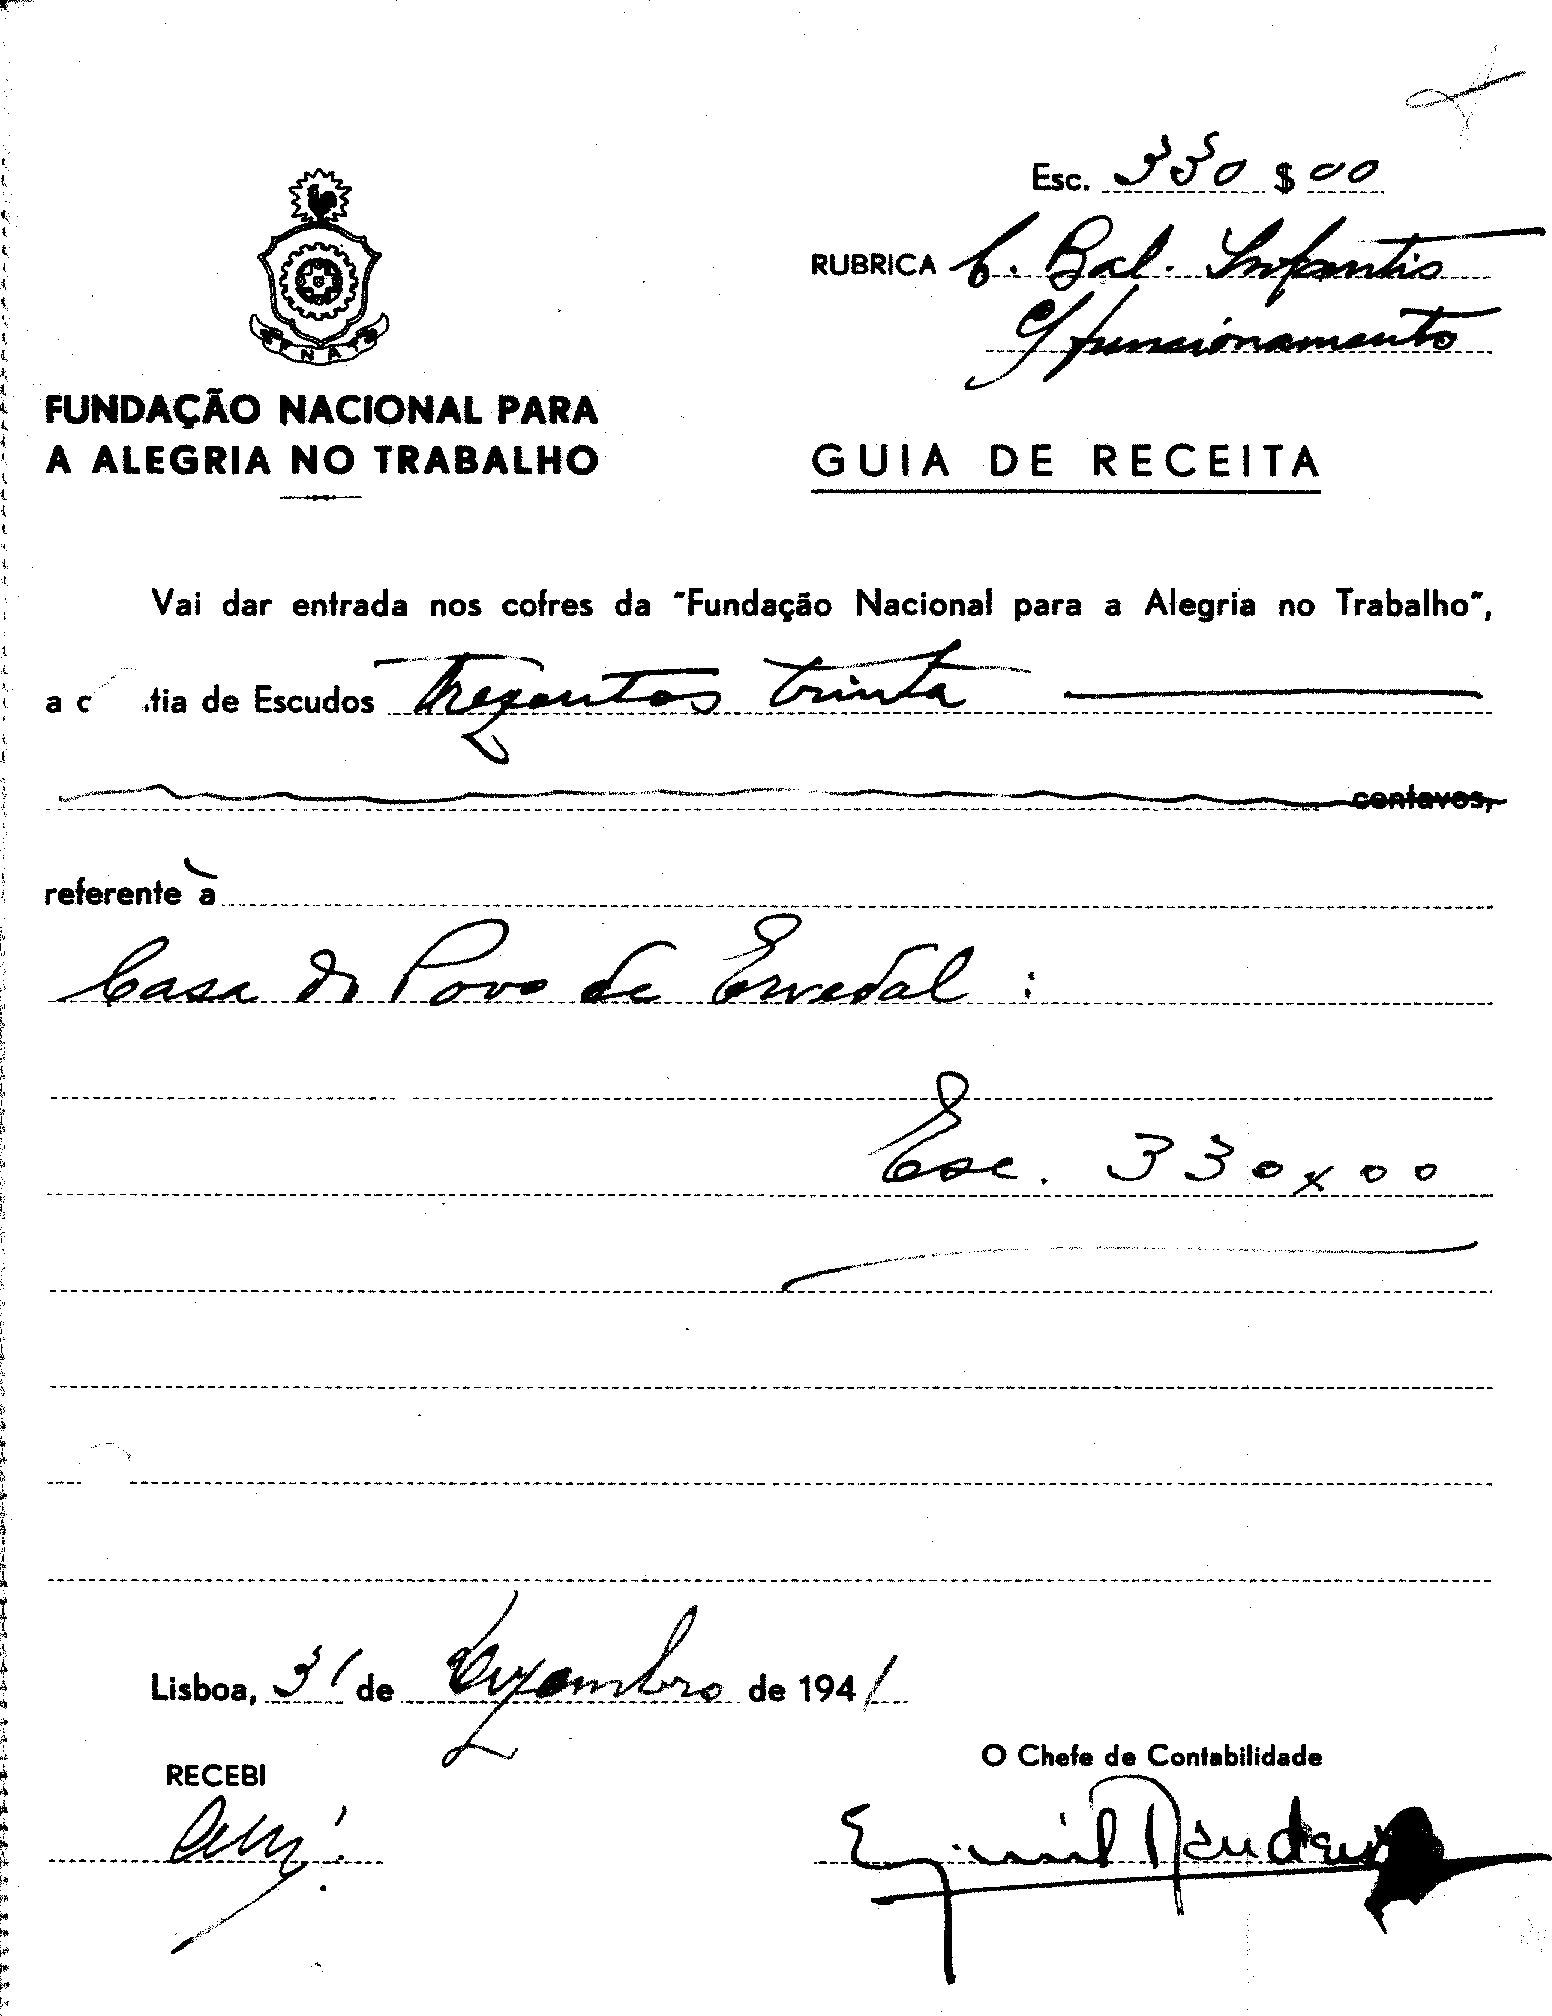 Esc. 330 $ 00
RUBRICA C. Bal. Infantis
c/ funcionamento
FNAT
FUNDAÇÃO NACIONAL PARA
A ALEGRIA NO TRABALHO
GUIA DE RECEITA
Vai dar entrada nos cofres da "Fundação Nacional para a Alegria no Trabalho",
a c tia de Escudos Trezentos trinta
centavos,
referente à
Casa do Povo de Ervedal :
Esc. 330x00
Lisboa, 31 de Dezembro de 1941
RECEBI
O Chefe de Contabilidade